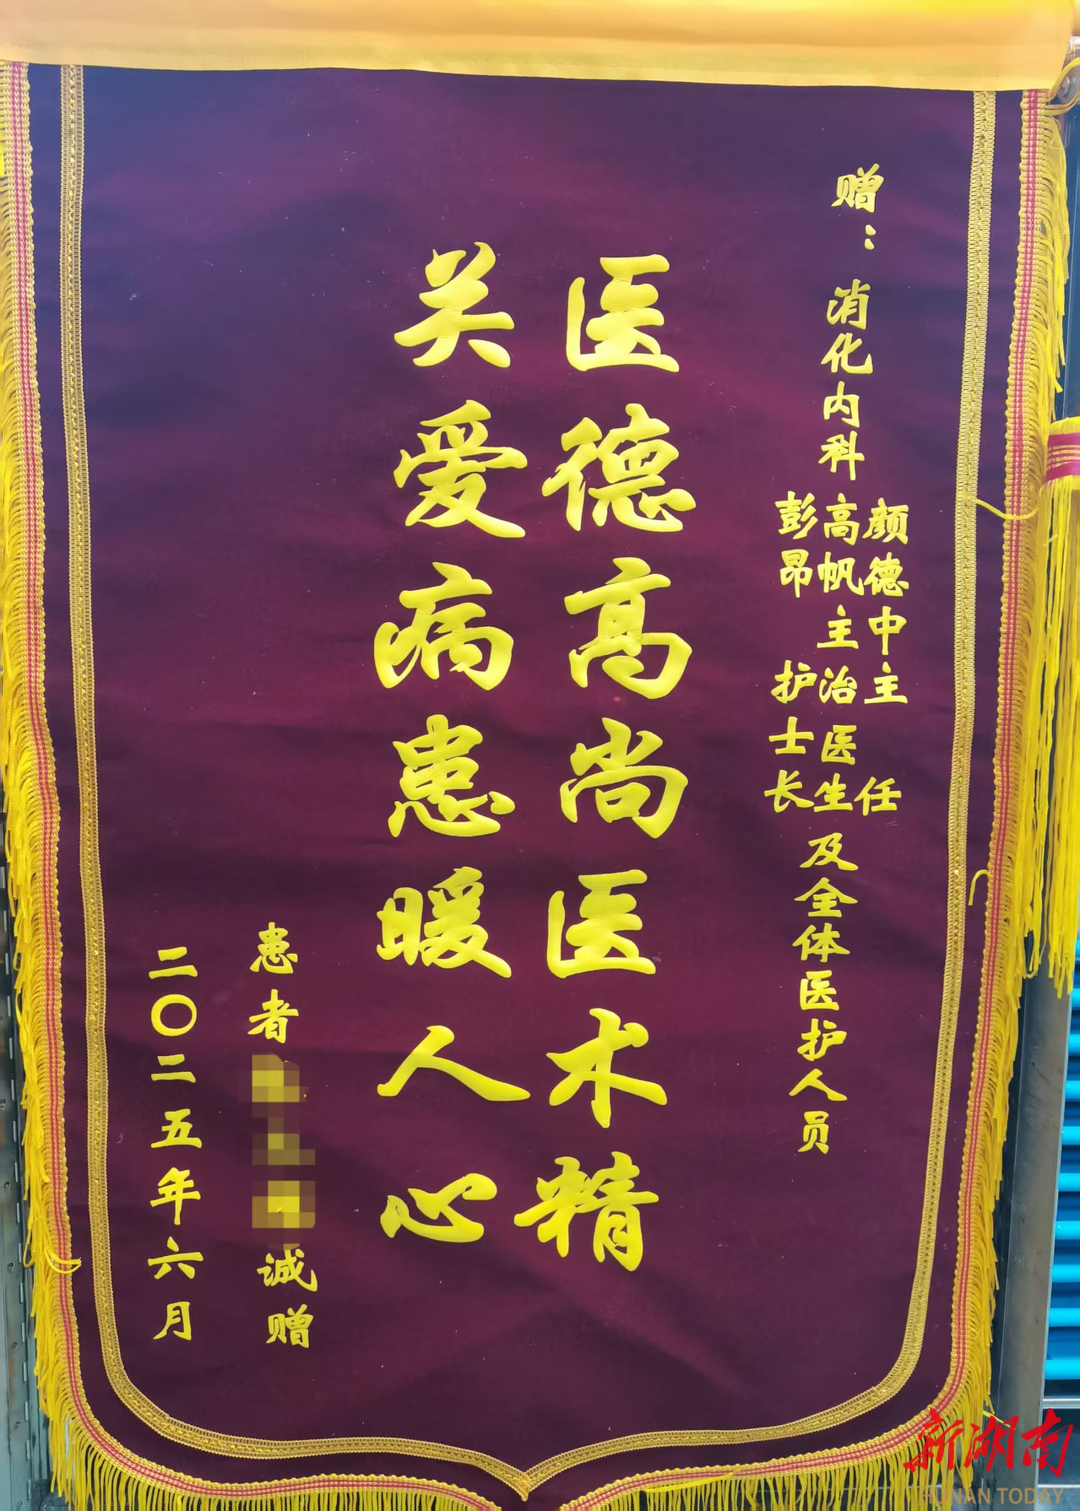 赠：消化内科
颜德中主任
高帆主治医生
彭昂护士长
及全体医护人员
医德高尚医术精
关爱病患暖人心
患者
诚赠
二〇二五年六月
新湖南
HUNAN TODAY